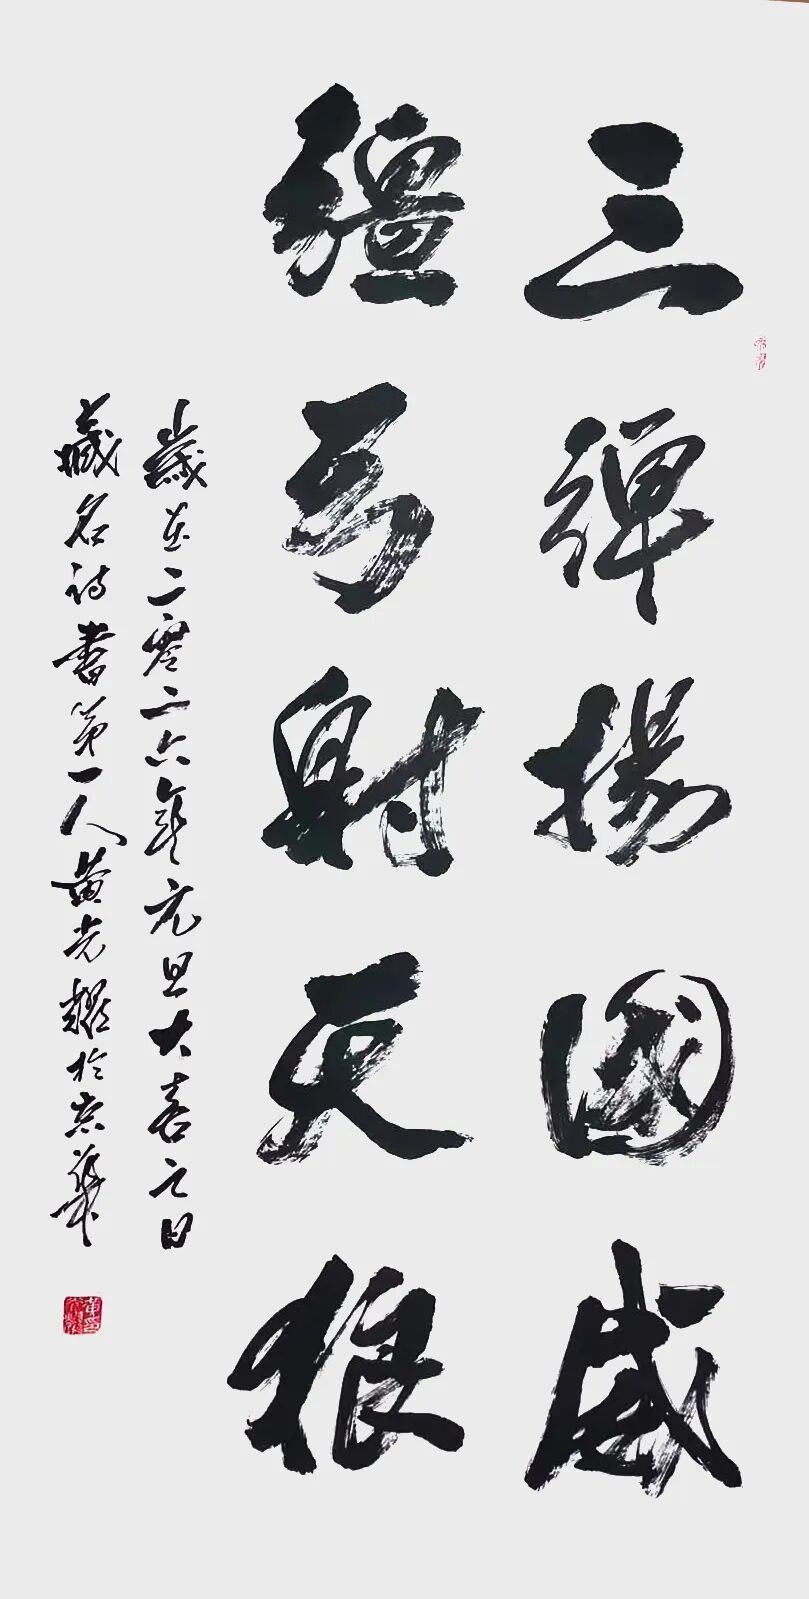 三彈揚國威
彊弓射天狼
歲在二零二六年元旦大喜之日
藏名詩書第一人黄光耀於京華